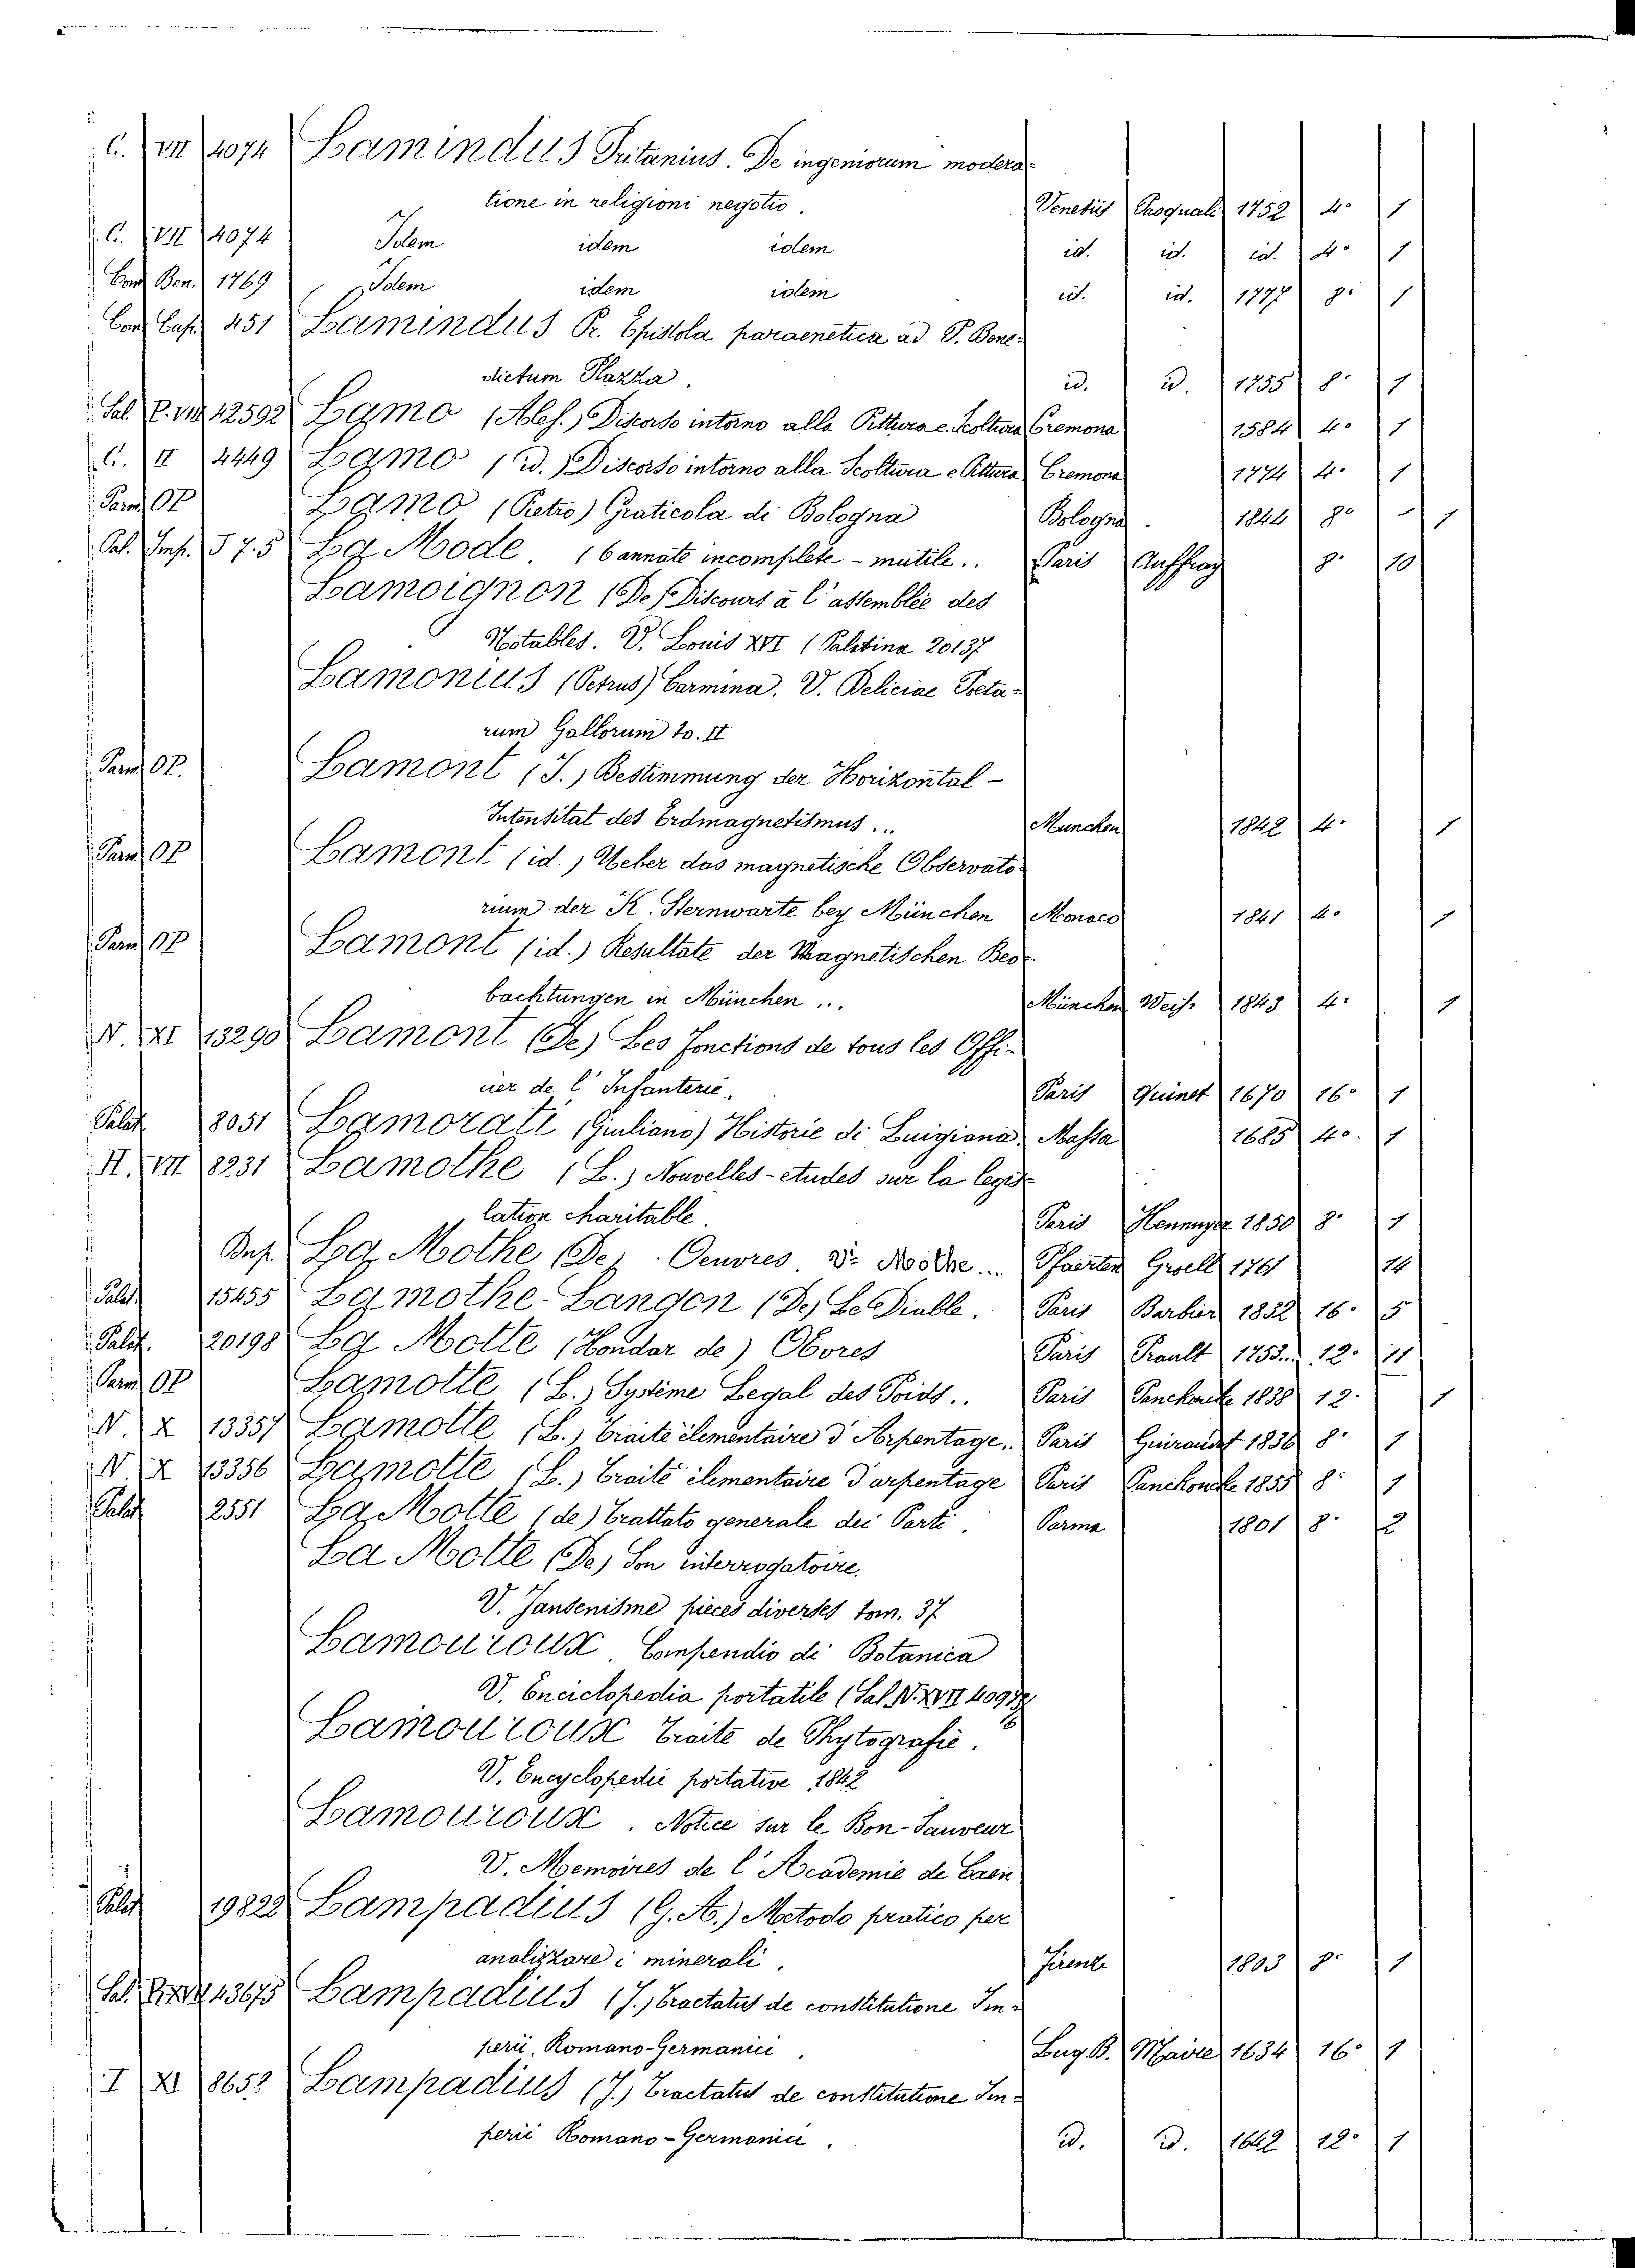 C. VII 4074 Lamindus Pritanius. De ingeniorum modera-
tione in religioni negotio. Venetiis Pasquali 1752 4° 1
C. VII 4074 Idem idem idem id. id. id. 4° 1
Con. Ben. 1769 Idem idem idem id. id. 1777 8° 1
Con. Cas. 451 Lamindus Pr. Epistola paraenetica ad P. Bene-
dictum Plazza. id. id. 1755 8° 1
Sal. P. VII 12592 Lamo (Aless.) Discorso intorno alla Pittura e Scoltura Cremona 1584 4° 1
C. II 4449 Lamo (id.) Discorso intorno alla Scoltura e Pittura Cremona 1774 4° 1
Parm. OP Lamo (Pietro) Graticola di Bologna Bologna. 1844 8° 1
Pal. Imp. J 7.5 La Mode. (6 annate incomplete - mutile.. Paris Auffray 8° 10
Lamoignon (De) Discours à l'assemblée des
Notables. V. Louis XVI (Palatina 20137
Lamonius (Petrus) Carmina. V. Deliciae Poeta-
rum Gallorum to. II
Parm. OP. Lamont (J.) Bestimmung der Horizontal-
Intensitat des Erdmagnetismus... Munchen 1842 4° 1
Parm. OP Lamont (id.) Ueber das magnetische Observato-
rium der K. Sternwarte bey München Monaco 1841 4° 1
Parm. OP Lamont (id.) Resultate der Magnetischen Beo-
bachtungen in München... München Weiss 1843 4° 1
N. XI 13290 Lamont (De) Les Fonctions de tous les Offi-
cier de l'Infanterie. Paris Quinet 1670 16° 1
Palat. 8051 Lamorati (Giuliano) Historie di Luigiana Massa 1685 4°. 1
H. VII 8231 Lamothe (L.) Nouvelles-etudes sur la legis-
lation charitable. Paris Hennuyer 1850 8° 1
Bnp. La Mothe (De) Oeuvres V. Mothe... Gsell 1761 14
Palat. 15455 Lamothe-Langon (De) Le Diable. Paris Barbier 1832 16° 5
Palat. 20198 La Motte (Houdar de) Obores Paris Prault 1753... 12° 11
Parm. OP Lamotte (L.) Système Legal des Poids.. Paris Panckoucke 1838 12° 1
N. X 13357 Lamotte (L.) Traité élementaire d'Arpentage.. Paris Guiraudet 1836 8° 1
N X 13356 Lamotte (L.) Traité élementaire d'arpentage Paris Panckoucke 1855 8° 1
Palat. 2551 La Motte (de) Trattato generale dei Parti. Parma 1801 8° 2
La Motte (De) Son interrogatoire.
V. Jansenisme pieces diverses tom. 37
Lamouroux. Compendio di Botanica
V. Enciclopedia portatile (Sal. N. XVII 40979
Lamouroux Traité de Phytografie.
V. Encyclopedie portative 1842
Lamouroux. Notice sur le Bon-Sauveur
V. Memoires de l'Academie de Caen
Palat. 19822 Lampadius (G. A.) Metodo pratico per
analizzare i minerali. Firenze 1803 8° 1
Sal. 43675 Lampadius (J.) Tractatus de constitutione Im-
perii, Romano-Germanici. Lug. B. Maire 1634 16° 1
I XI 8652 Lampadius (J.) Tractatus de constitutione Im-
perii Romano-Germanici. id. id. 1642 12° 1